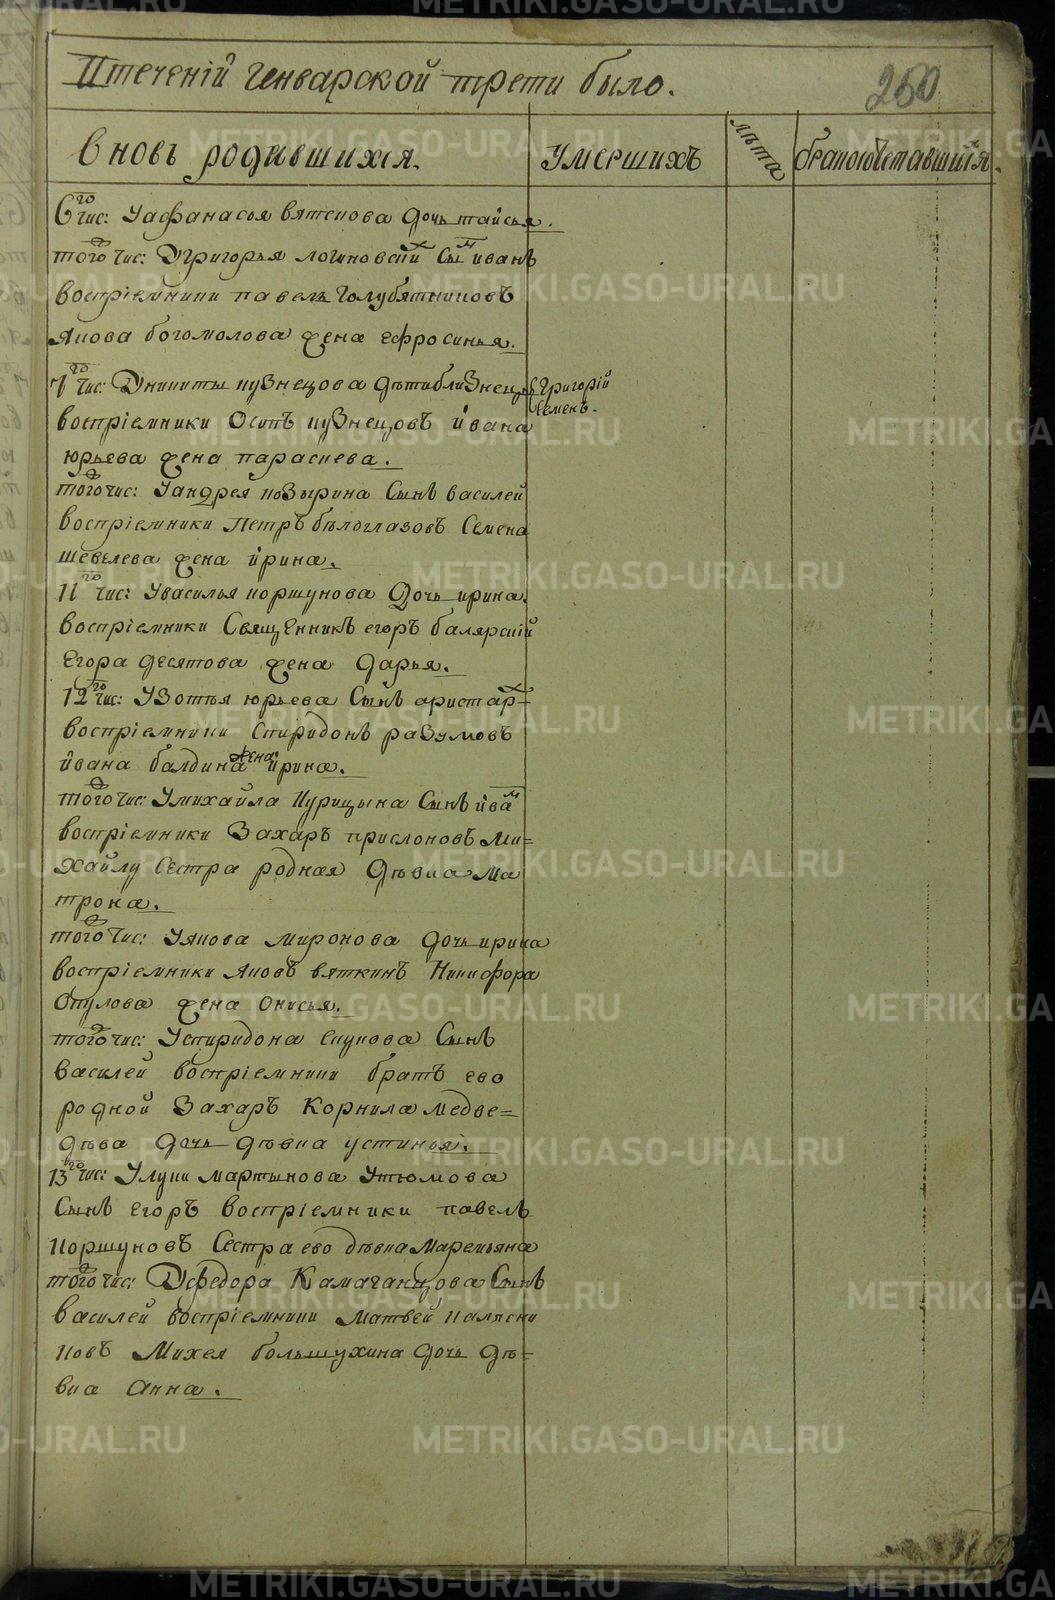 Втечении Генварской трети было.
250
Вновь родившихся.
умершихъ
лѣта
бракосочетавшихся.
6го чис: У афанасья вяткова дочь таисья.
того чис: У Григорья логиновскихъ Сынъ иванъ
воспрiемники павелъ Голубятниковъ
якова богомолова жена ефросинья.
7го чис: У никиты кузнецова дѣти близнецы Григорiй
Семенъ.
воспрiемники Осипъ кузнецовъ ивана
юрьева жена параскева.
того чис: У андрея козырина Сынъ василей
воспрiемники Петръ бѣлоглазовъ Семена
шевелева жена ирина.
11го чис: У василья коршунова дочь ирина.
воспрiемники Священникъ егоръ балярскiй
Егора десятова жена дарья.
12го чис: У Зотѣя юрьева Сынъ аристархъ
воспрiемники Спиридонъ разумовъ
ивана балдина жена ирина.
того чис: У михайла Курицына Сынъ иванъ
воспрiемники Захаръ прислоновъ Ми=
хайлу Сестра родная дѣвка ма
трона.
того чис: У якова миронова дочь ирина
воспрiемники яковъ вяткинъ Никифора
Окулова жена онисья.
того чис: У спиридона Окулова Сынъ
василей воспрiемники братъ ево
родной Захаръ Корнила медве=
дѣва дочь дѣвка устинья.
13го чис: У луки мартынова утюмова
Сынъ егоръ воспрiемники павелъ
Коршуновъ Сестра ево дѣвка маремьяна
того чис: У федора Камаганцова Сынъ
василей воспрiемники матвей Калясни
ковъ Михея большухина дочь дѣ=
вка анна.
METRIKI.GASO-URAL.RU